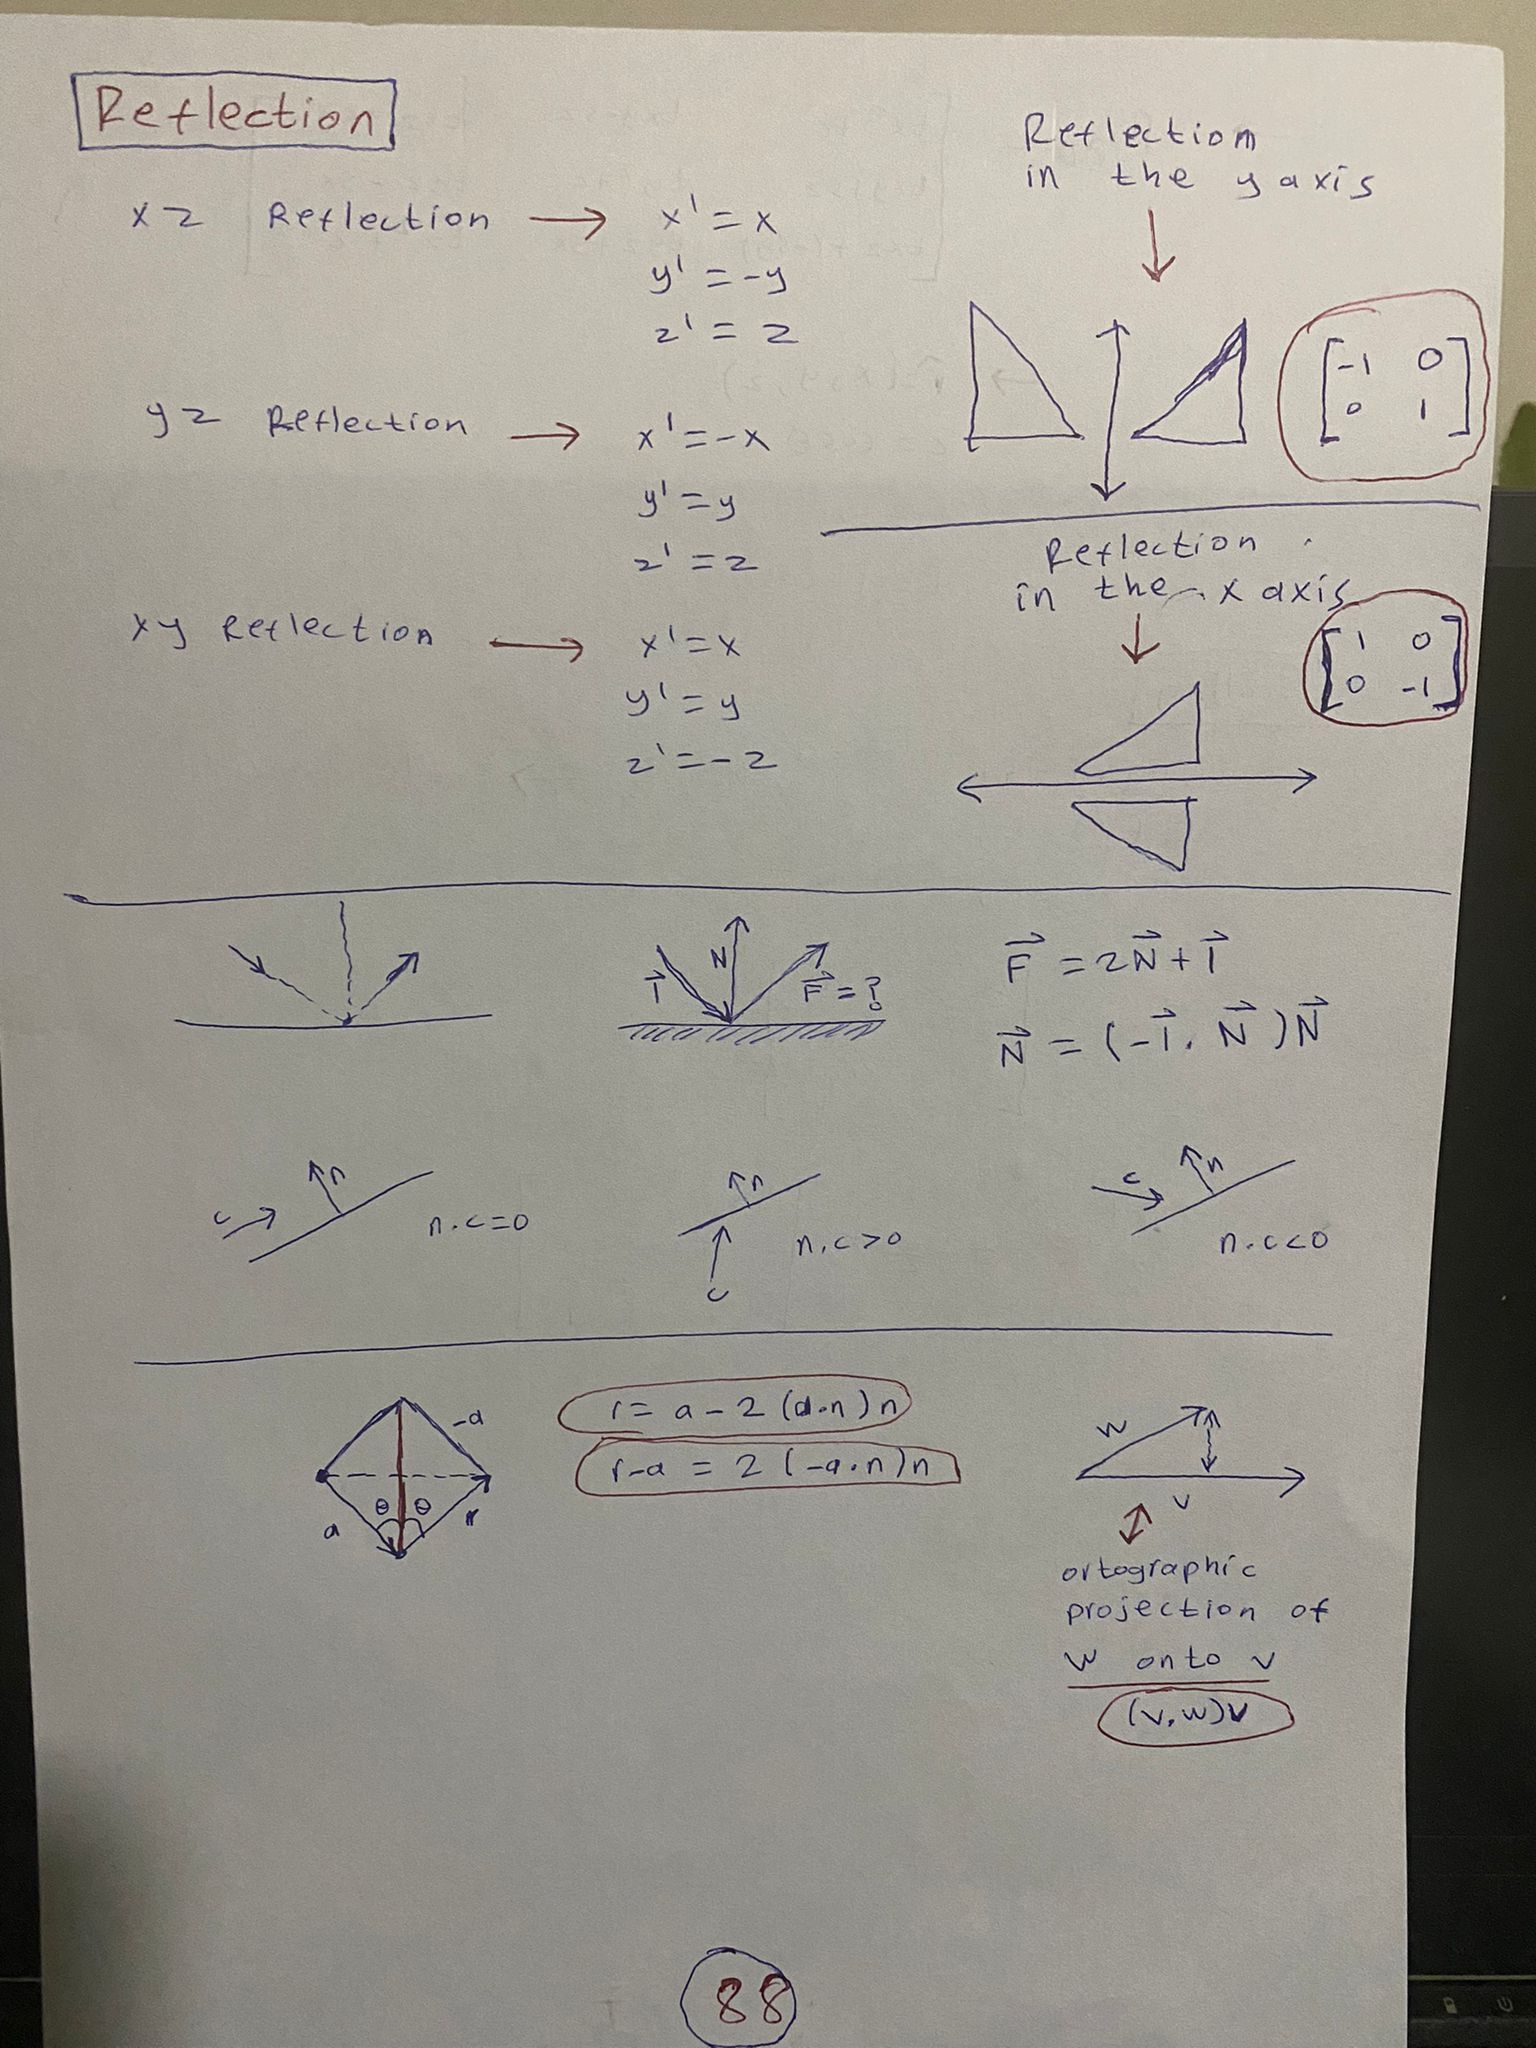 Reflection
xz Reflection → x' = x
y' = -y
z' = z
yz Reflection → x' = -x
y' = y
z' = z
xy Reflection → x' = x
y' = y
z' = -z
Reflection
in the y axis
-1 0
0 1
Reflection
in the x axis
1 0
0 -1
I N F = ?
F = 2N + I
N = (-I . N)N
c n n.c=0
n c n.c>0
c n n.c<0
-a
a θ θ r
r = a - 2(a.n)n
r-a = 2(-a.n)n
w
v
ortographic
projection of
w onto v
(v.w)v
88